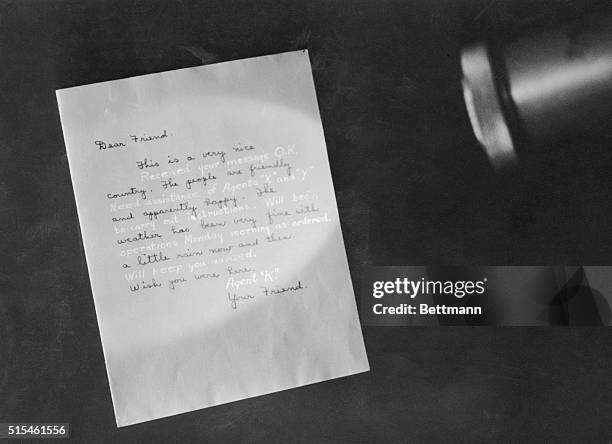 Dear Friend.
This is a very nice
Received your message O.K.
country. The people are friendly
Need assistance of Agents "X" and "Y"
and apparently happy. The
be carry out instructions. Will begin
weather has been very fine with
operations Monday morning as ordered.
a little rain now and then.
Will keep you advised.
Wish you were here.
Agent "K"
Your Friend.
gettyimages
Bettmann
515461556